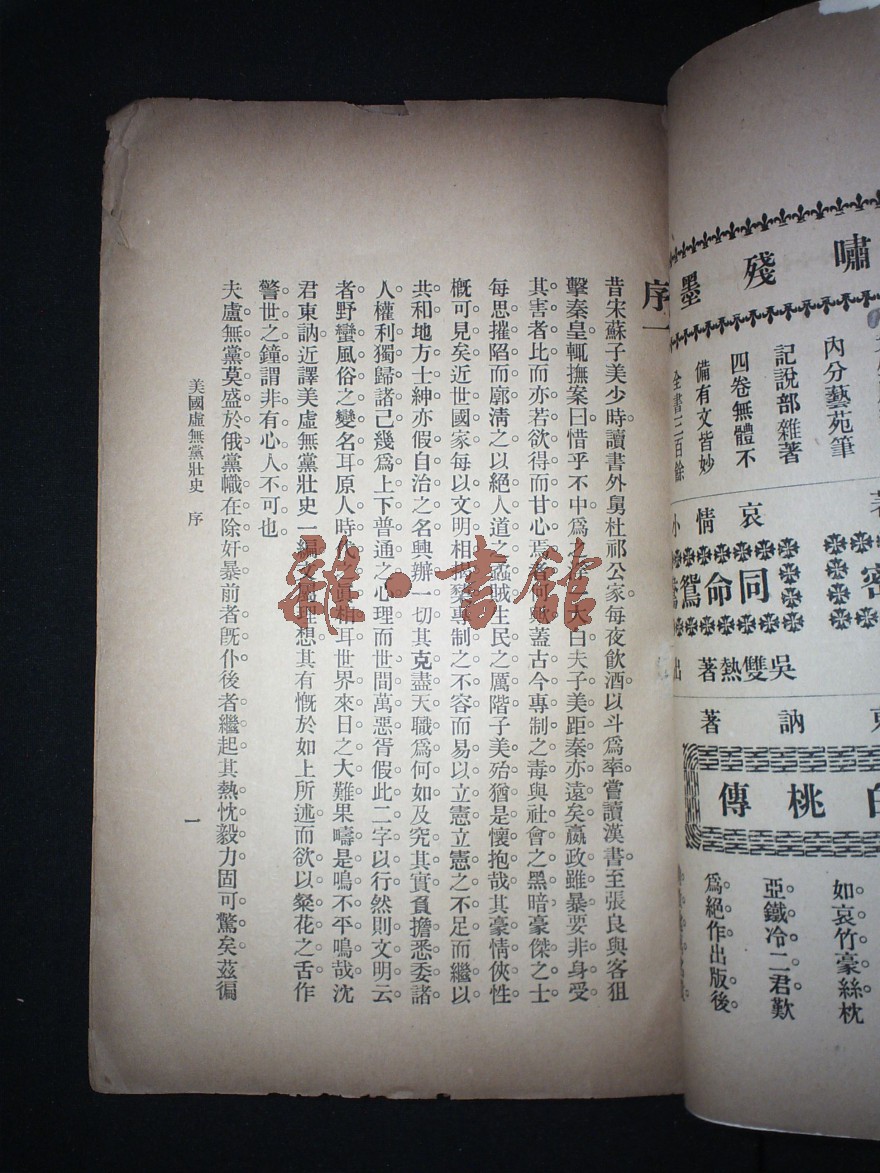 序一
昔宋蘇子美少時讀書外舅杜祁公家每夜飲酒以斗爲率嘗讀漢書至張良與客狙
擊秦皇輒撫案曰惜乎不中爲大白夫子美距秦亦遠矣嬴政雖暴要非身受
其害者比而亦若欲得而甘心焉者何歟蓋古今專制之毒與社會之黑暗豪傑之士
每思摧陷而廓淸之以絕人道之蟊賊生民之厲階子美殆猶是懷抱哉其豪情俠性
概可見矣近世國家每以文明相專制之不容而易以立憲立憲之不足而繼以
共和地方士紳亦假自治之名興辦一切其克盡天職爲何如及究其實負擔悉委諸
人權利獨歸諸己幾爲上下普通之心理而世間萬惡胥假此二字以行然則文明云
者野蠻風俗之變名耳原人時代之眞相耳世界來日之大難果疇是鳴不平鳴哉沈
君東訥近譯美虛無黨壯史一編文理想其有慨於如上所述而欲以粲花之舌作
警世之鐘謂非有心人不可也
夫虛無黨莫盛於俄黨幟在除奸暴前者旣仆後者繼起其熱忱毅力固可驚矣茲徧
美國虛無黨壯史 序
一
嘯殘墨
內分藝苑筆
記說部雜著
四卷無體不
備有文皆妙
全書三百餘
著
哀情小
同命鴛
吳雙熱著
訥著
白桃傳
如哀竹豪絲枕
亞鐵冷二君歎
爲絕作出版後